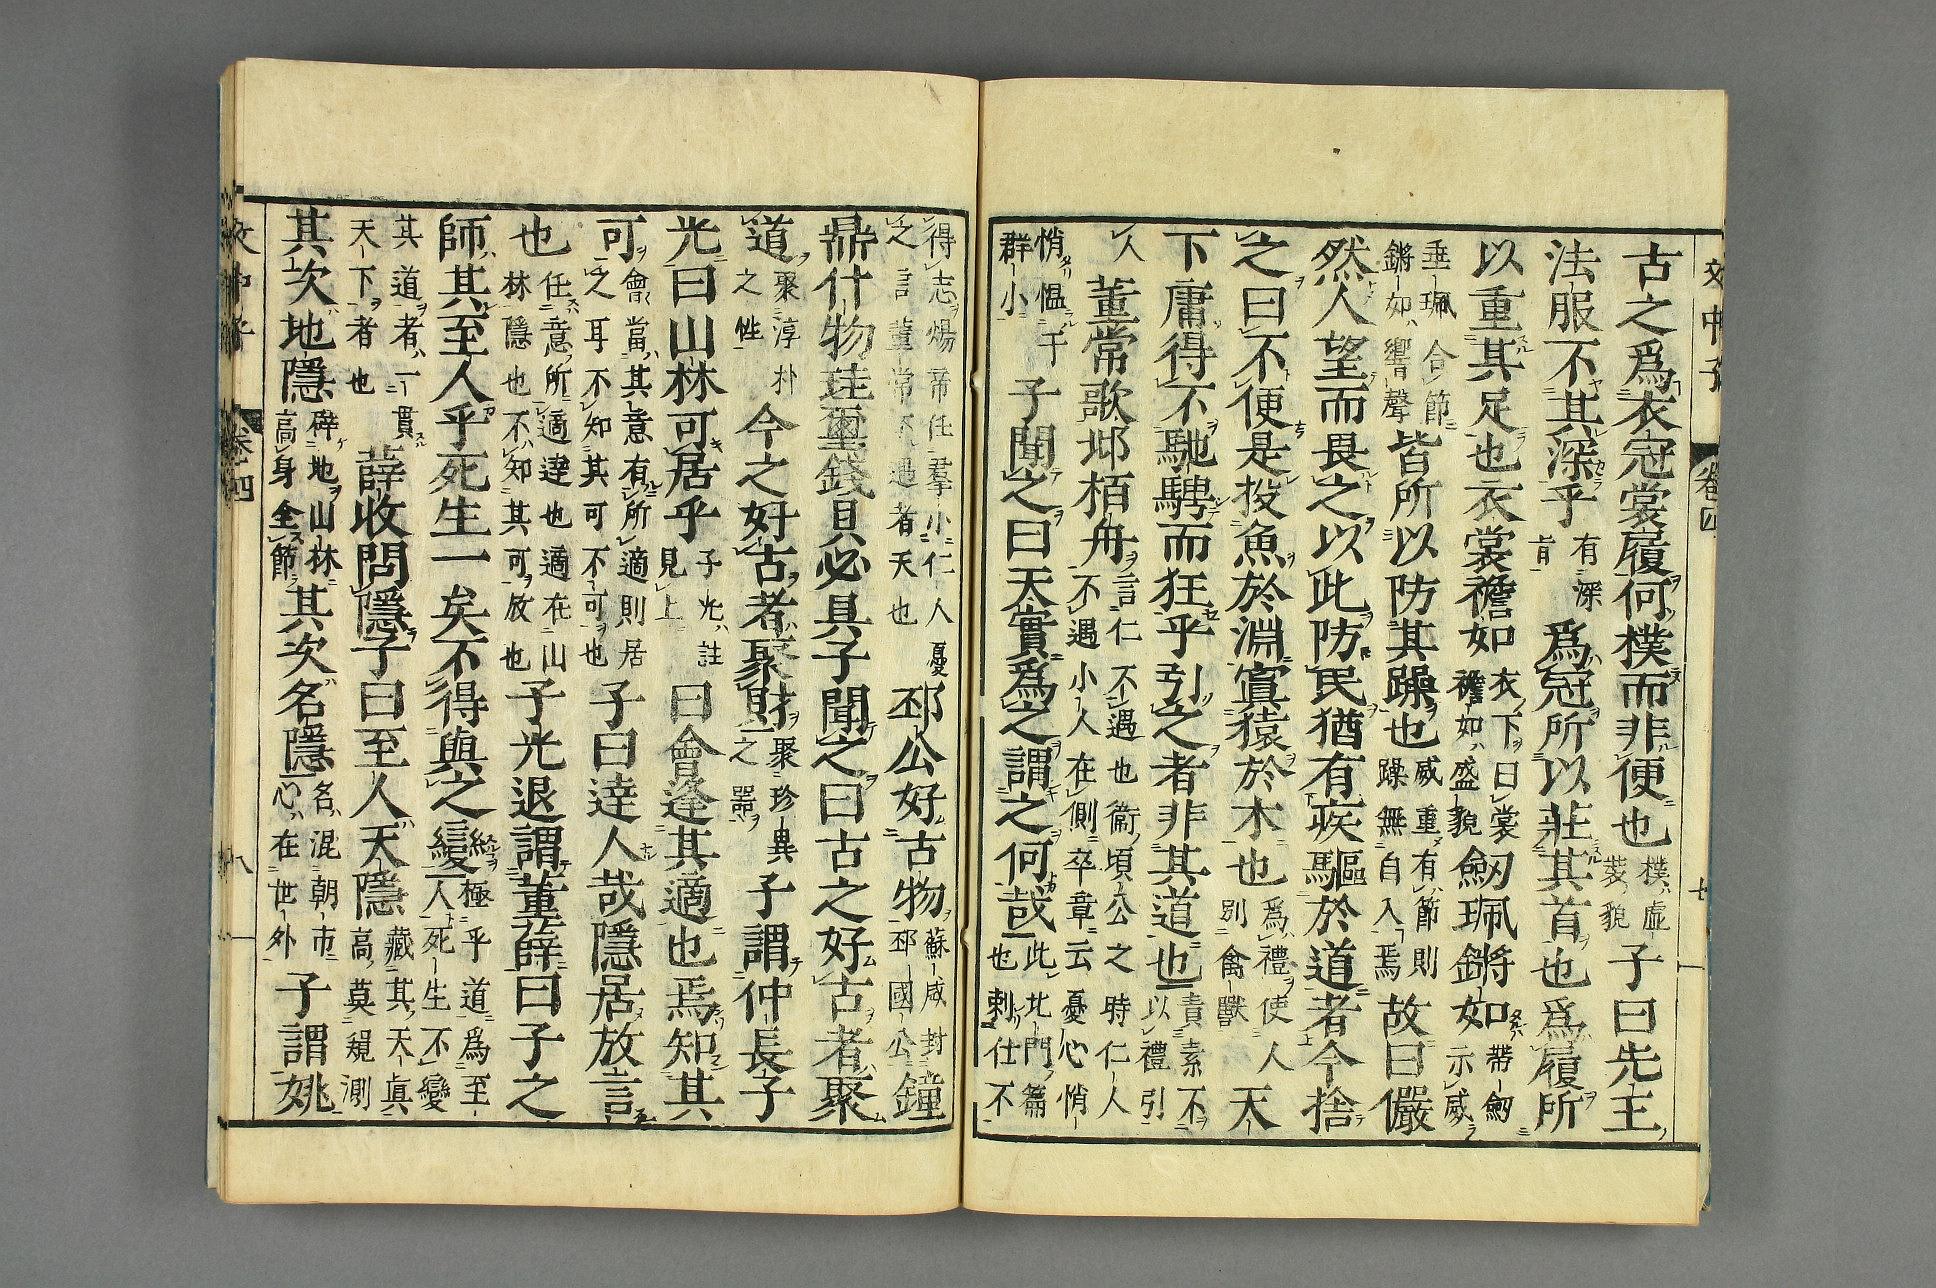 文中子 卷四 七
古之爲衣冠裳履何樸而非便也
樸虛
貌
子曰先王
法服不其深乎
有深
旨
爲冠所以莊其首也爲履所
以重其足也衣裳襜如
衣下曰裳
襜如盛貌
劒珮鏘如
帶劒
示威
垂珮合節
鏘如響聲
皆所以防其躁也
威重有節則
躁無自入焉
故曰儼
然人望而畏之以此防民猶有疾驅於道者今捨
之曰不便是投魚於淵寘猿於木也
爲禮使人
別禽獸
天
下庸得不馳騁而狂乎引之者非其道也
責素不
以禮引
人
董常歌邶栢舟
言仁不遇也衞頃公之時仁人
不遇小人在側卒章云憂心悄
悄慍于
群小
子聞之曰天實爲之謂之何哉
此北門篇
也刺仕不
得志煬帝任羣小仁人憂
之言董常不遇者天也
邳公好古物
蘇威封
邳國公
鐘
鼎什物珪璽錢貝必具子聞之曰古之好古者聚
道
聚淳朴
之性
今之好古者聚財
聚珍異
之器
子謂仲長子
光曰山林可居乎
子光註
見上
曰會逢其適也焉知其
可
會當其意有所適則居
之耳不知其可不可也
子曰達人哉隱居放言
也
任意所適達也適在山
林隱也不知其可放也
子光退謂董薛曰子之
師其至人乎死生一矣不得與之變
終極乎道爲至
人死生不變
其道者一貫
天下者也
薛收問隱子曰至人天隱
藏其天眞
高莫窺測
其次地隱
辟地山林
高身全節
其次名隱
名混朝市
心在世外
子謂姚
文中子 卷四 八